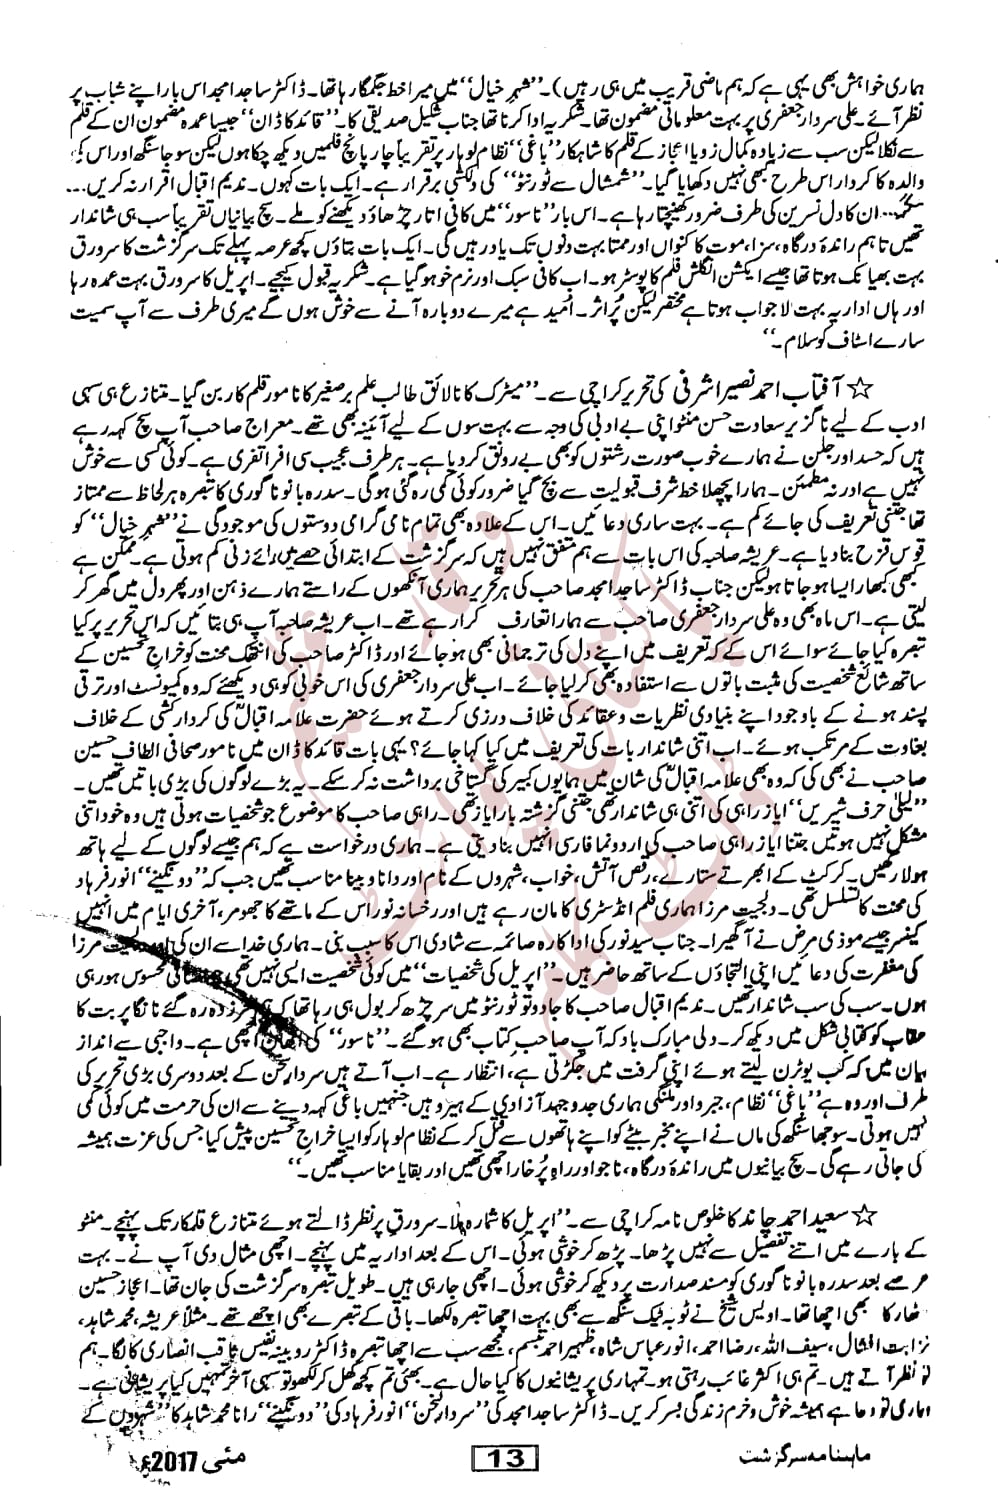 ہماری خواہش بھی یہی ہے کہ ہم ماضی قریب میں ہی رہیں)۔ ’’شہرِ خیال‘‘ میں میرا خط جگمگا رہا تھا۔ ڈاکٹر ساجد امجد اس بار اپنے شباب پر
نظر آئے۔ علی سردار جعفری پر بہت معلوماتی مضمون تھا۔ شکریہ ادا کرنا تھا جناب شکیل صدیقی کا۔ ’’قائد کا ڈان‘‘ جیسا عمدہ مضمون ان کے قلم
سے نکلا لیکن سب سے زیادہ کمال زویا اعجاز کے قلم کا شاہکار ’’باغی‘‘ نظام لوہار پر تقریباً چار پانچ فلمیں دیکھ چکا ہوں لیکن سوجا سنگھ اور اس کی
والدہ کا کردار اس طرح بھی نہیں دکھایا گیا۔ ’’شمشال سے ٹورنٹو‘‘ کی دلکشی برقرار ہے۔ ایک بات کہوں۔ ندیم اقبال اقرار نہ کریں...
مگر... ان کا دل نسرین کی طرف ضرور کھینچتا رہا ہے۔ اس بار ’’ناسور‘‘ میں کافی اتار چڑھاؤ دیکھنے کو ملے۔ سچ بیانیاں تقریباً سب ہی شاندار
تھیں تاہم راندۂ درگاہ، سزا، موت کا کنواں اور ممتا بہت دنوں تک یاد رہیں گی۔ ایک بات بتاؤں کچھ عرصہ پہلے تک سرگزشت کا سرورق
بہت بھیانک ہوتا تھا جیسے ایکشن انگلش فلم کا پوسٹر ہو۔ اب کافی سبک اور نرم خو ہو گیا ہے۔ شکریہ قبول کیجیے۔ اپریل کا سرورق بہت عمدہ رہا
اور ہاں اداریہ بہت لا جواب ہوتا ہے مختصر لیکن پُر اثر۔ اُمید ہے میرے دوبارہ آنے سے خوش ہوں گے میری طرف سے آپ سمیت
سارے اسٹاف کو سلام۔‘‘
☆ آفتاب احمد نصیر اشرفی کی تحریر کراچی سے۔ ’’میٹرک کا نالائق طالب علم برصغیر کا نامور قلم کار بن گیا۔ متنازع ہی سہی
ادب کے لیے ناگزیر سعادت حسن منٹو اپنی بے ادبی کی وجہ سے بہت سوں کے لیے آئینہ بھی تھے۔ معراج صاحب آپ سچ کہہ رہے
ہیں کہ حسد اور جلن نے ہمارے خوب صورت رشتوں کو بھی بے رونق کر دیا ہے۔ ہر طرف عجیب سی افراتفری ہے۔ کوئی کسی سے خوش
نہیں ہے اور نہ مطمئن۔ ہمارا پچھلا خط شرف قبولیت سے بچ گیا ضرور کوئی کمی رہ گئی ہوگی۔ سدرہ بانو ناگوری کا تبصرہ ہر لحاظ سے ممتاز
تھا جتنی تعریف کی جائے کم ہے۔ بہت ساری دعائیں۔ اس کے علاوہ بھی تمام نامی گرامی دوستوں کی موجودگی نے ’’شہرِ خیال‘‘ کو
قوس قزح بنا دیا ہے۔ عریشہ صاحبہ کی اس بات سے ہم متفق نہیں ہیں کہ سرگزشت کے ابتدائی حصے میں رائے زنی کم ہوتی ہے۔ ممکن ہے
کبھی کبھار ایسا ہو جاتا ہو لیکن جناب ڈاکٹر ساجد امجد صاحب کی ہر تحریر ہماری آنکھوں کے راستے ہمارے ذہن اور پھر دل میں گھر کر
لیتی ہے۔ اس ماہ بھی وہ علی سردار جعفری صاحب سے ہمارا تعارف کرا رہے تھے۔ اب عریشہ صاحبہ آپ ہی بتائیں کہ اس تحریر پر کیا
تبصرہ کیا جائے سوائے اس کے کہ تعریف میں اپنے دل کی ترجمانی بھی ہو جائے اور ڈاکٹر صاحب کی انتھک محنت کو خراج تحسین کے
ساتھ شائع شخصیت کی مثبت باتوں سے استفادہ بھی کر لیا جائے۔ اب علی سردار جعفری کی اس خوبی کو ہی دیکھئے کہ وہ کمیونسٹ اور ترقی
پسند ہونے کے باوجود اپنے بنیادی نظریات و عقائد کی خلاف ورزی کرتے ہوئے حضرت علامہ اقبالؒ کی کردار کشی کے خلاف
بغاوت کے مرتکب ہوئے۔ اب اتنی شاندار بات کی تعریف میں کیا کہا جائے؟ یہی بات قائد کا ڈان میں نامور صحافی الطاف حسین
صاحب نے بھی کی کہ وہ بھی علامہ اقبالؒ کی شان میں ہمایوں کبیر کی گستاخی برداشت نہ کر سکے۔ یہ بڑے لوگوں کی بڑی باتیں تھیں۔
’’لیلیٰ حرف شیریں‘‘ ایاز راہی کی اتنی ہی شاندار تھی جتنی گزشتہ بار ایاز تھی۔ راہی صاحب کا موضوع جو شخصیات ہوتی ہیں وہ خود اتنی
مشکل نہیں ہوتیں جتنا ایاز راہی صاحب کی اردو نما فارسی انہیں بنا دیتی ہے۔ ہماری درخواست ہے کہ ہم جیسے لوگوں کے لیے ہاتھ
ہولا رکھیں۔ کرکٹ کے ابھرتے ستارے، رقص آتش، خواب، شہروں کے نام اور دانا و بینا مناسب تھیں جب کہ ’’دو نگینے‘‘ انور فرہاد
کی محنت کا تسلسل تھی۔ دلجیت مرزا ہماری فلم انڈسٹری کا مان رہے ہیں اور رخسانہ نور اس کے ماتھے کا جھومر، آخری ایام میں انہیں
کینسر جیسے موذی مرض نے آ گھیرا۔ جناب سید نور کی اداکارہ صائمہ سے شادی اس کا سبب بنی۔ ہماری خدا سے ان کی اور مرزا
کی مغفرت کی دعائیں اپنی التجاؤں کے ساتھ حاضر ہیں۔ ’’اپریل کی شخصیات‘‘ میں کوئی شخصیت ایسی نہیں تھی محسوس ہو رہی
ہوں۔ سب کی سب شاندار تھیں۔ ندیم اقبال صاحب کا جادو تو ٹورنٹو میں سر چڑھ کر بول ہی رہا تھا کہ زدہ رہ گئے نانگا پربت کا
عقاب کو کتابی شکل میں دیکھ کر۔ دلی مبارک باد کہ آپ صاحب کتاب بھی ہو گئے۔ ’’ناسور‘‘ کی اٹھان اچھی ہے۔ واجبی سے انداز
بیان میں کہ کب یوٹرن لیتے ہوئے اپنی گرفت میں جکڑتی ہے، انتظار ہے۔ اب آتے ہیں سردارِ سخن کے بعد دوسری بڑی تحریر کی
طرف اور وہ ہے ’’باغی‘‘ نظام، جبرو اور ملنگی ہماری جدوجہد آزادی کے ہیرو ہیں جنہیں باغی کہہ دینے سے ان کی حرمت میں کوئی کمی
نہیں ہوتی۔ سوجھا سنگھ کی ماں نے اپنے مخبر بیٹے کو اپنے ہاتھوں سے قتل کر کے نظام لوہار کو ایسا خراج تحسین پیش کیا جس کی عزت ہمیشہ
کی جاتی رہے گی۔ سچ بیانیوں میں راندۂ درگاہ، ناجو اور راہ پُرخار اچھی تھیں اور بقایا مناسب تھیں۔‘‘
☆ سعید احمد چاند کا خلوص نامہ کراچی سے۔ ’’اپریل کا شمارہ ملا۔ سرورق پر نظر ڈالتے ہوئے متنازع قلمکار تک پہنچے۔ منٹو
کے بارے میں اتنے تفصیل سے نہیں پڑھا۔ پڑھ کر خوشی ہوئی۔ اس کے بعد اداریہ میں پہنچے۔ اچھی مثال دی آپ نے۔ بہت
عرصے بعد سدرہ بانو ناگوری کو مسند صدارت پر دیکھ کر خوشی ہوئی۔ اچھی جا رہی ہیں۔ طویل تبصرہ سرگزشت کی جان تھا۔ اعجاز حسین
سٹھار کا بھی اچھا تھا۔ اویس شیخ نے ٹوبہ ٹیک سنگھ سے بھی بہت اچھا تبصرہ لکھا۔ باقی کے تبصرے بھی اچھے تھے۔ مثلاً عریشہ، محمد شاہد،
نزابت افشال، سیف اللہ، رضا احمد، انور عباس شاہ، ظہیر احمد تبسم، مجھے سب سے اچھا تبصرہ ڈاکٹر روبینہ نفیس ثاقب انصاری کا لگا۔ ہم
تو نظر آتے ہیں۔ تم ہی اکثر غائب رہتی ہو۔ تمہاری پریشانیوں کا کیا حال ہے۔ بھئی تم کچھ کھل کر لکھو تو سہی آخر تمہیں کیا پریشانی ہے۔
ہماری تو دعا ہے ہمیشہ خوش و خرم زندگی بسر کریں۔ ڈاکٹر ساجد امجد کی ’’سردارِ سخن‘‘ انور فرہاد کی ’’دو نگینے‘‘ رانا محمد شاہد کا ’’شہروں کے
ماہنامہ سرگزشت
13
مئی 2017ء